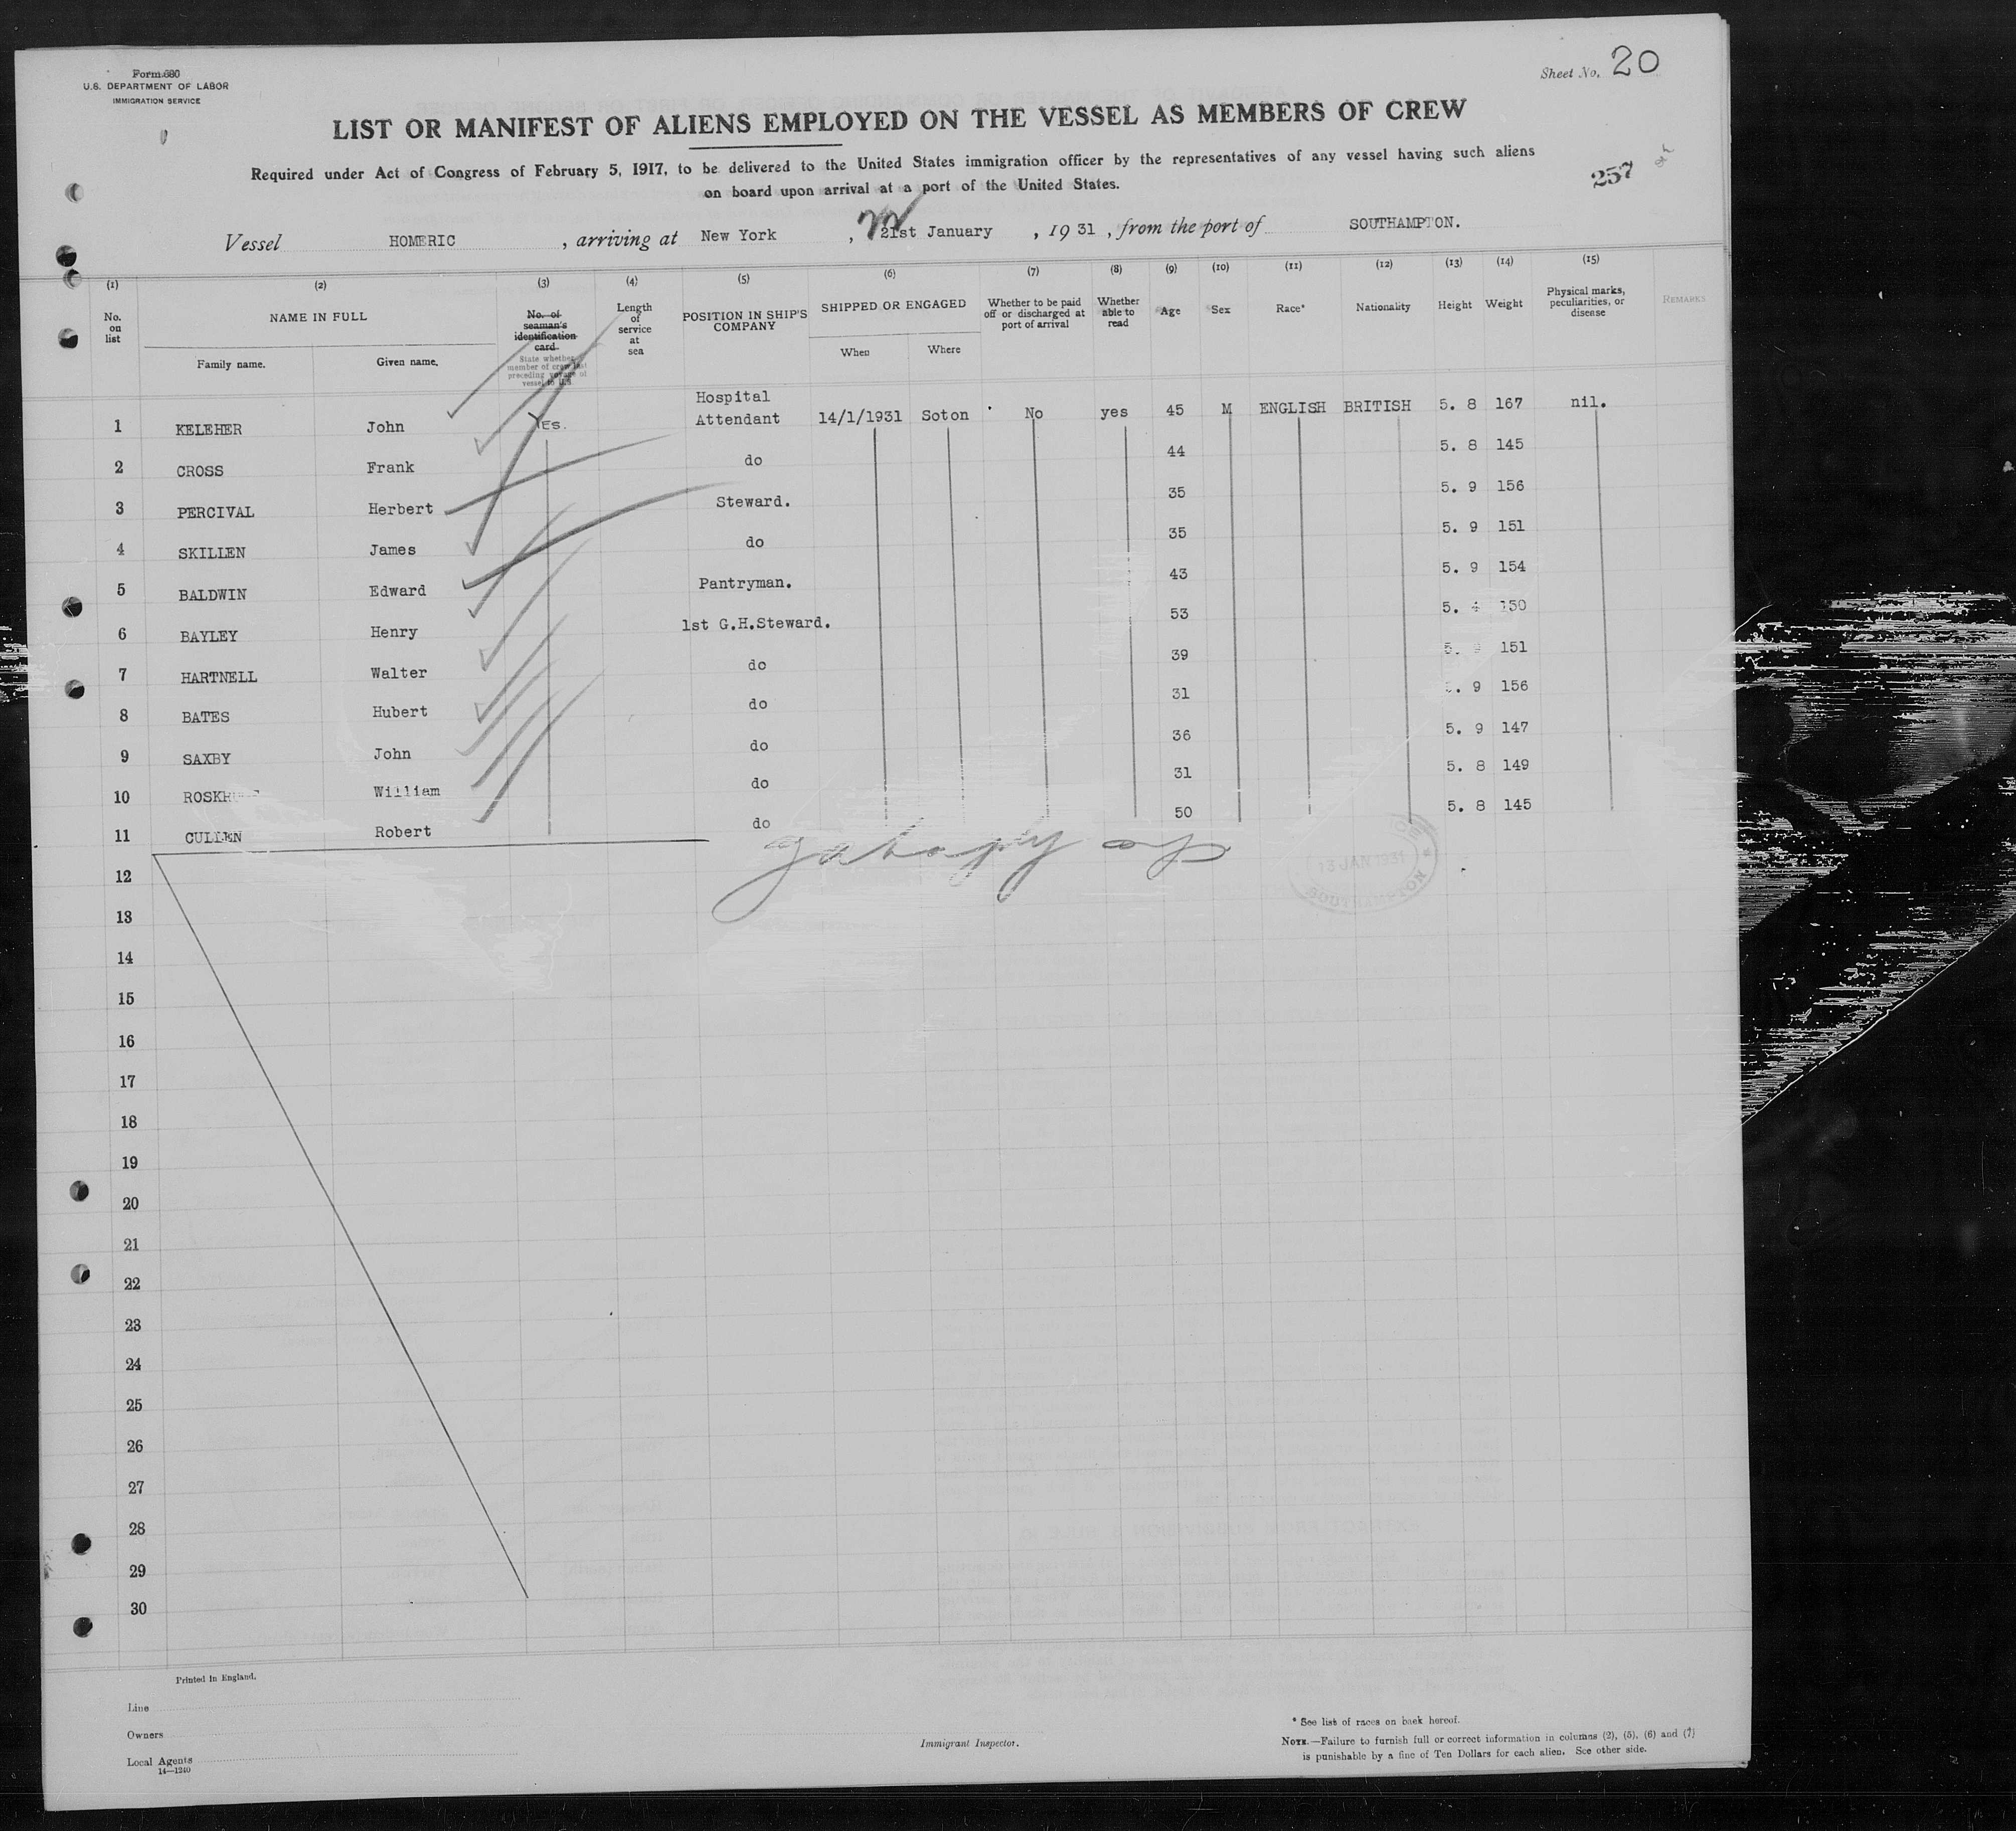 Form 680
U.S. DEPARTMENT OF LABOR
IMMIGRATION SERVICE
Sheet No. 20
LIST OR MANIFEST OF ALIENS EMPLOYED ON THE VESSEL AS MEMBERS OF CREW
Required under Act of Congress of February 5, 1917, to be delivered to the United States immigration officer by the representatives of any vessel having such aliens
on board upon arrival at a port of the United States.
257
Vessel HOMERIC , arriving at New York , 21st January , 19 31 , from the port of SOUTHAMPTON.
(1) (2) (3) (4) (5) (6) (7) (8) (9) (10) (11) (12) (13) (14) (15)
No. on list
NAME IN FULL
Family name. Given name.
No. of seaman's identification card
State whether member of crew last preceding voyage of vessel to U.S.
Length of service at sea
POSITION IN SHIP'S COMPANY
SHIPPED OR ENGAGED
When Where
Whether to be paid off or discharged at port of arrival
Whether able to read
Age
Sex
Race*
Nationality
Height
Weight
Physical marks, peculiarities, or disease
REMARKS
1 KELEHER John Yes. Hospital Attendant 14/1/1931 Soton No yes 45 M ENGLISH BRITISH 5. 8 167 nil.
2 CROSS Frank do 44 5. 8 145
3 PERCIVAL Herbert Steward. 35 5. 9 156
4 SKILLEN James do 35 5. 9 151
5 BALDWIN Edward Pantryman. 43 5. 9 154
6 BAYLEY Henry 1st G.H.Steward. 53 5. 4 150
7 HARTNELL Walter do 39 5. 151
8 BATES Hubert do 31 9 156
9 SAXBY John do 36 5. 9 147
10 William do 31 5. 8 149
11 CULLEN Robert do 50 5. 8 145
13 JAN 1931
SOUTHAMPTON
12
13
14
15
16
17
18
19
20
21
22
23
24
25
26
27
28
29
30
Printed in England.
Line
Owners
Local Agents
14—1240
Immigrant Inspector.
* See list of races on back hereof.
NOTE.—Failure to furnish full or correct information in columns (2), (5), (6) and (7)
is punishable by a fine of Ten Dollars for each alien. See other side.